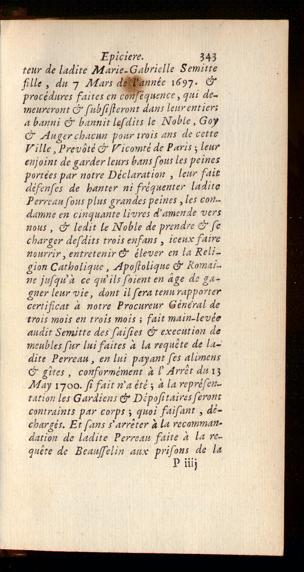 Epiciere. 343
teur de ladite Marie-Gabrielle Semitte
fille, du 7 Mars de l'année 1697. &
procédures faites en conséquence, qui de-
meureront & subsisteront dans leur entier;
a banni & bannit lesdits le Noble, Goy
& Auger chacun pour trois ans de cette
Ville, Prevôté & Vicomté de Paris; leur
enjoint de garder leurs bans sous les peines
portées par notre Déclaration, leur fait
défenses de hanter ni fréquenter ladite
Perreau sous plus grandes peines, les con-
damne en cinquante livres d'amende vers
nous, & ledit le Noble de prendre & se
charger desdits trois enfans, iceux faire
nourrir, entretenir & élever en la Reli-
gion Catholique, Apostolique & Romai-
ne jusqu'à ce qu'ils soient en âge de ga-
gner leur vie, dont il sera tenu rapporter
certificat à notre Procureur Général de
trois mois en trois mois; fait main-levée
audit Semitte des saisies & execution de
meubles sur lui faites à la requête de la-
dite Perreau, en lui payant ses alimens
& gîtes, conformément à l'Arrêt du 13
May 1700. si fait n'a été; à la représen-
tation les Gardiens & Dépositaires seront
contraints par corps; quoi faisant, dé-
chargés. Et sans s'arrêter à la recomman-
dation de ladite Perreau faite à la re-
quête de Beausselin aux prisons de la
P iiij